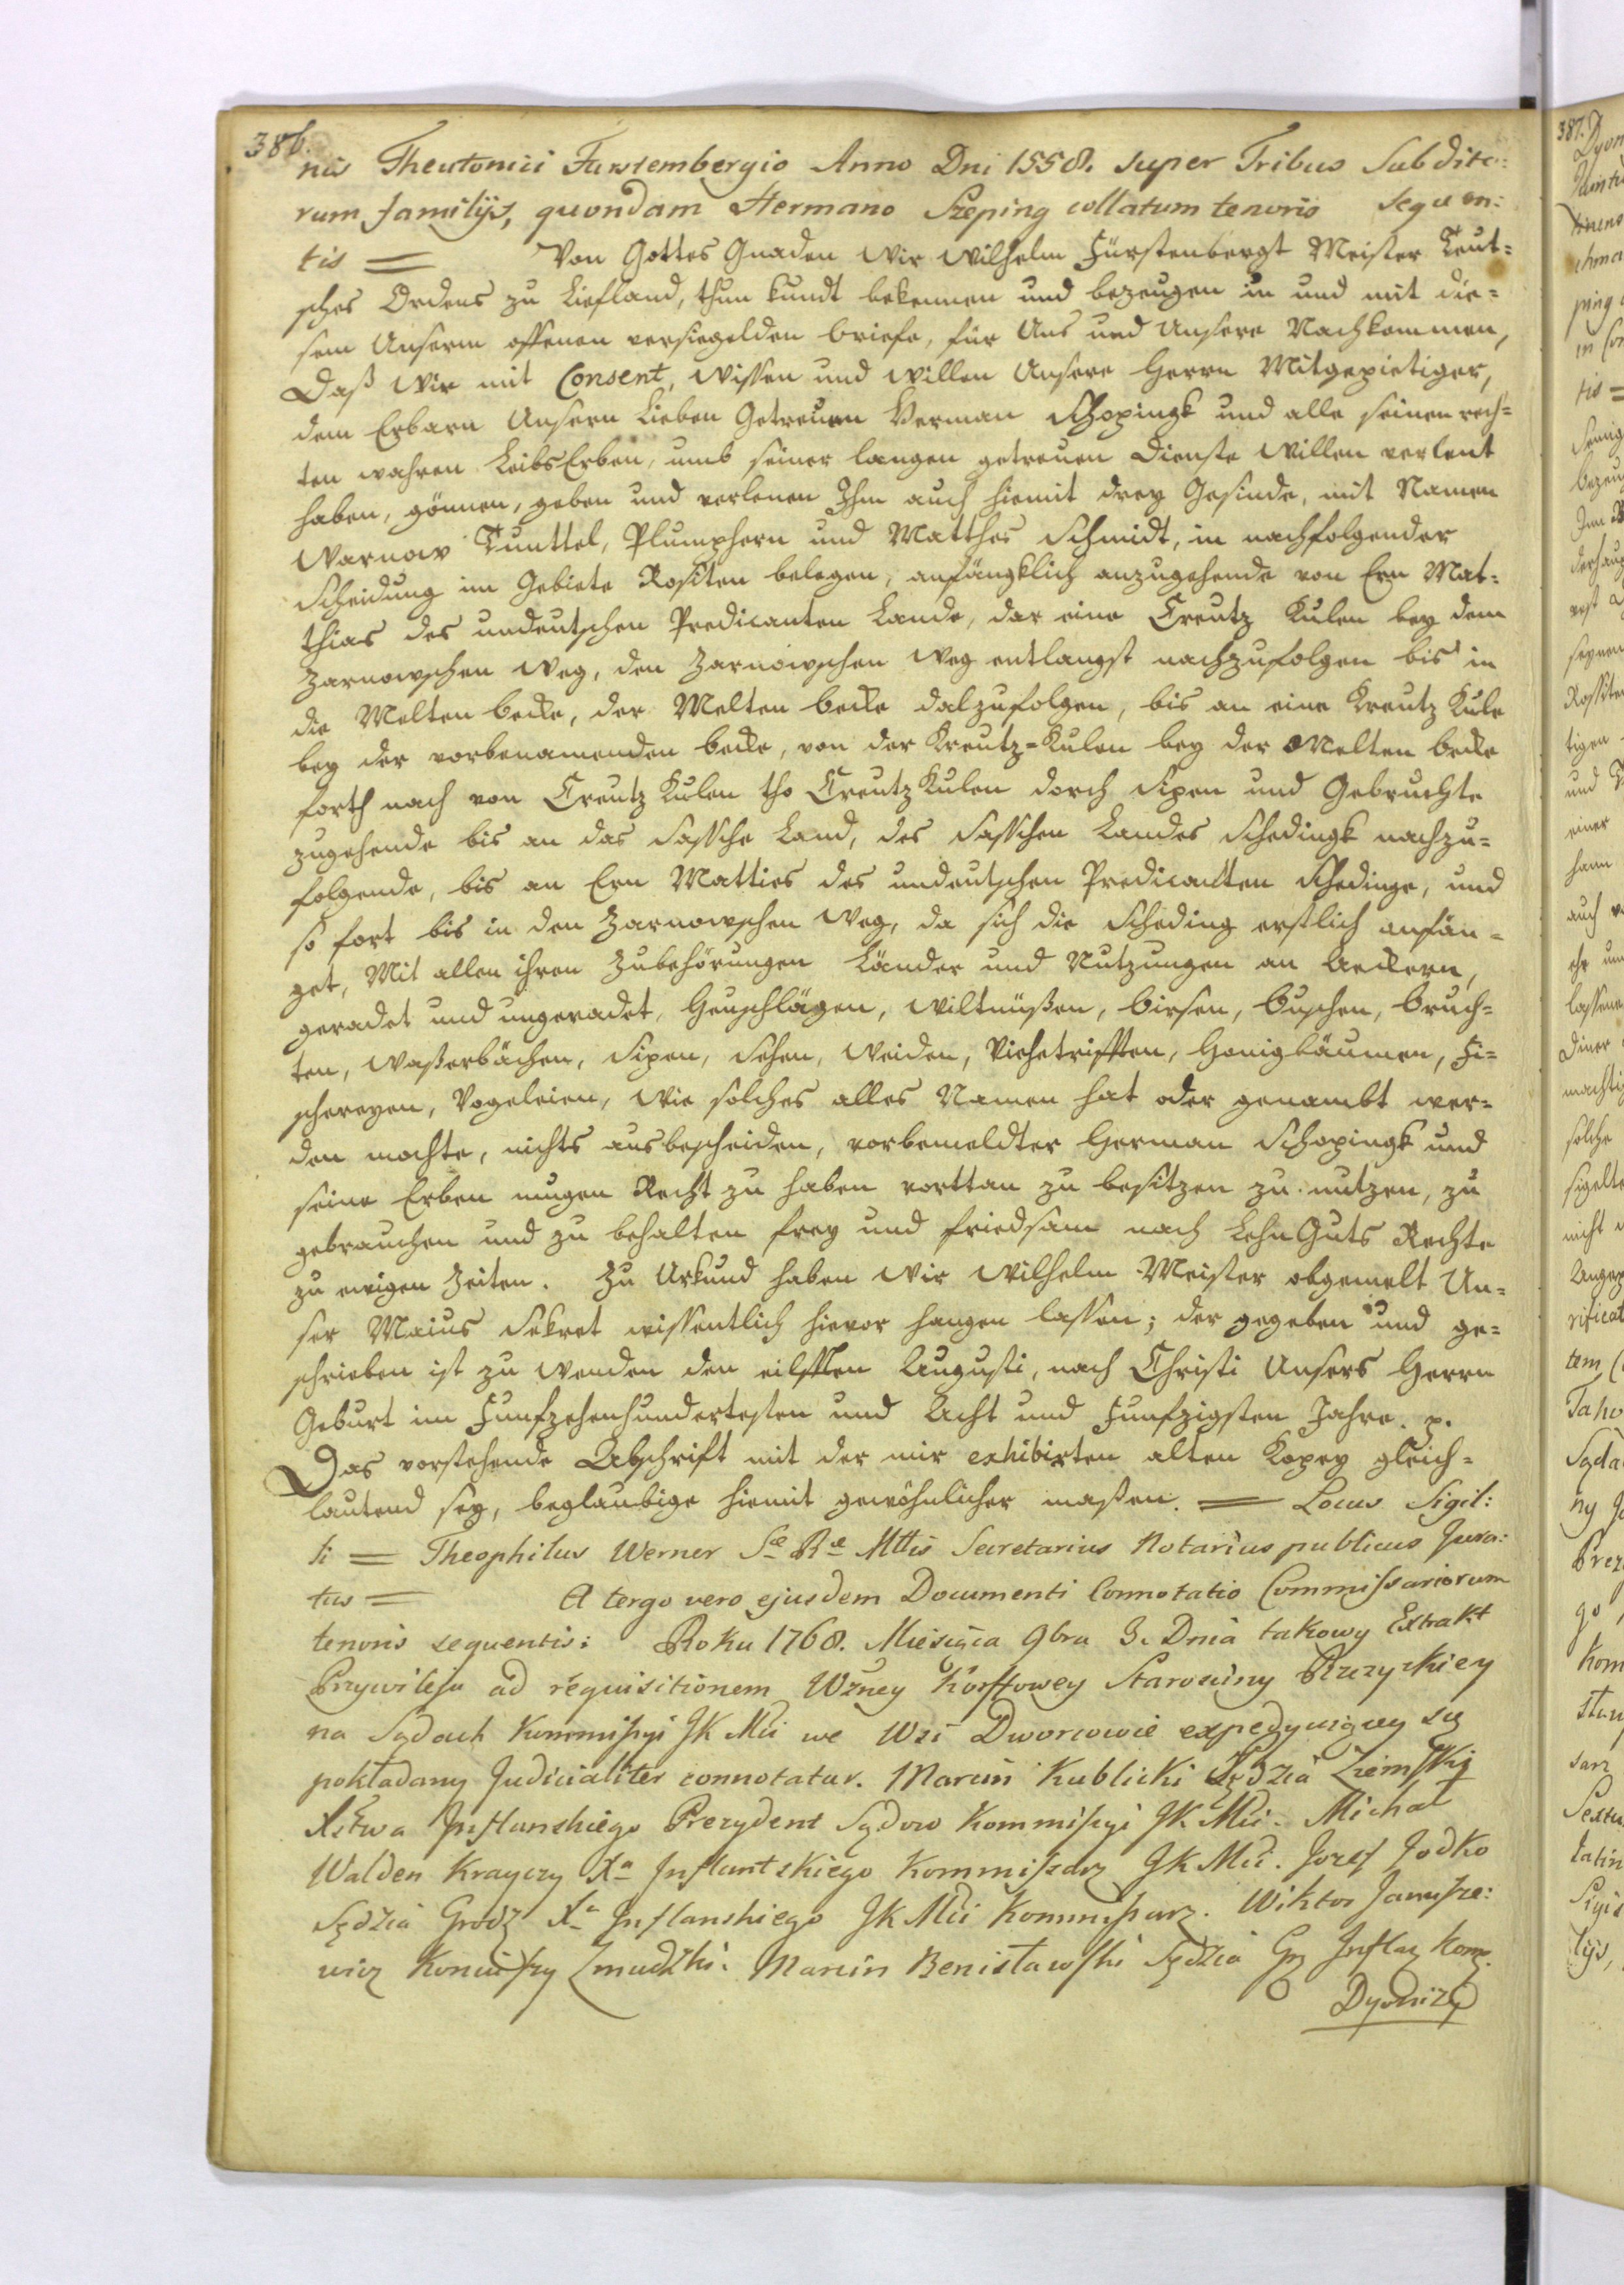 386.
nis Theutonici Furstembergio Anno Dni 1558. super Tribus Subdito:
rum familijs, quondam Hermano Szeping collatum tenoris sequen:
tis = Von Gottes Gnaden Wir Wilhelm Fürstenbergk Meister Teut=
sches Ordens zu Liefland, thun kundt bekennen und bezeugen in und mit die=
sem Unserm offenen versiegelden briefe, für Uns und Unsere Nachkommen,
Daß Wir mit Consent, Wissen und Willen Unsere Herrn Mitgepietiger,
dem Erbarn Unsern Lieben Getreuen Herman Schopingk und alle seinen rech=
ten wahren LeibsErben, umb seiner langen getreuen Dienste Willen verlent
haben, gönnen, geben und verlenen Ihm auch hiemit drey Gesinde, mit Namen
Warnow Tunttel, Plumphern und Matthes Schmidt, in nachfolgender
Scheidung im Gebiete Rositen belegen, anfängklich anzugehende von Ern Mat=
thias des undeutschen Predicanten Lande, dar eine Creutz Kulen bey dem
Zarnowschen Weg, den Zarnowschen Weg entlangst nachzufolgen bis in
die Melten becke, der Melten becke dalzufolgen, bis an eine Kreutz Kule
bey der vorbenamenden becke, von der Kreutz=Kulen bey der Melten becke
forth nach von Creutz Kulen tho Creutz Kulen dorch Sipen und Gebruchte
zugehende bis an das Sassche Land, des Sasschen Landes Schedingk nachzu=
folgende, bis an Ern Matties des undeutschen Predicanten Schedinge, und
so fort bis in den Zarnowschen Weg, da sich die Scheding erstlich anfän=
get, Mit allen ihren Zubehörungen Länder und Nutzungen an Aeckern,
geradet und ungeradet, Heuschlägen, Wiltnüßen, birsen, buschen, bruch=
ten, Waßerbächen, Sipen, Sehen, Weiden, Viehetrifften, Honigbäumen, Fi=
schereyen, Vogeleien, Wie solches alles Namen hat oder genambt wer=
den mochte, nichts ausbescheiden, vorbemeldter Herman Schopingk und
seine Erben mugen Recht zu haben vorttan zu besitzen zu nutzen, zu
gebrauchen und zu behalten frey und friedsam nach LehnGuts Rechte
zu ewigen Zeiten. Zu Urkund haben Wir Wilhelm Meister obgemelt Un=
ser Maius Sekret wissentlich hievor hangen lassen; der gegeben und ge=
schrieben ist zu Wenden den eilfften Augusti, nach Christi Unsers Herrn
Geburt im Funfzehenhundertesten und Acht und Funfzigsten Jahre. p.
Das vorstehende Abschrift mit der mir exhibirten alten Kopey gleich=
lautend sey, beglaubige hiemit gewöhnlicher maßen. = Locus Sigil:
li = Theophilus Werner Sæ Ræ Mttis Secretarius Notarius publicus Jura:
tus = A tergo vero ejusdem Documenti Connotatio Commissariorum
tenoris sequentis: Roku 1768. Miesiąca 9bra 3. Dnia takowy Extrakt
Przywileju ad requisitionem Wżney Korffowey Starosciny Rzezyckiey
na Sądach Kommissyi JK Mci we Wsi Dworcowie expedyuiącey się
pokładany Judicialiter connotatur. Marcin Kublicki Sędzia Ziemski
Xstwa Inflanskiego Prezydent Sądow Kommissyi JK Mci. Michał
Walden Krayczy Xa Inflantskiego Kommissarz JK Mci. Jozef Jodko
Sędzia Grodz Xa Inflanskiego JK Mci Kommissarz. Wiktor Janusze:
wicz Koniuszy Zmudzki. Marcin Benisławski Sędzia Grz Inflaz Komz.
Dyonizy